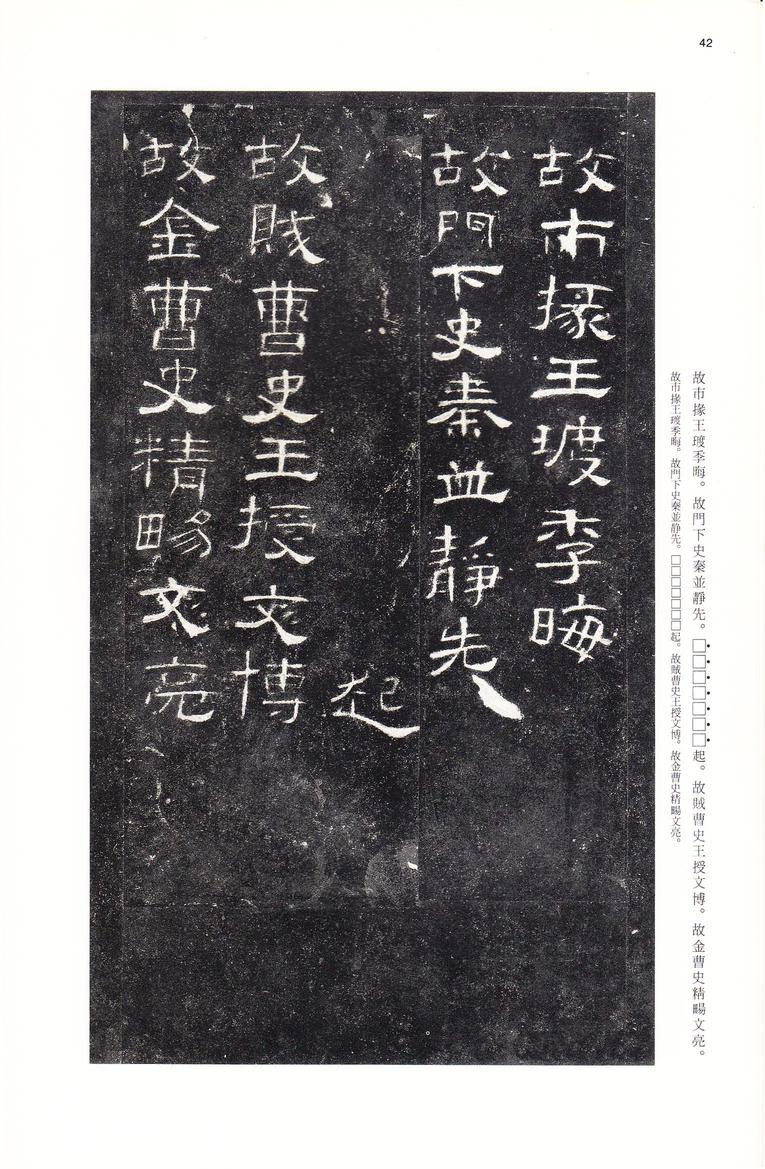 42
故市掾王䠾季晦。故門下史秦並靜先。□□□□□□□起。故賊曹史王授文博。故金曹史精暢文亮。
故市掾王䠾季晦。故門下史秦並靜先。□□□□□□□起。故賊曹史王授文博。故金曹史精暢文亮。
故市掾王季晦
故門下史秦並靜先
起
故賊曹史王授文博
故金曹史精暢文亮